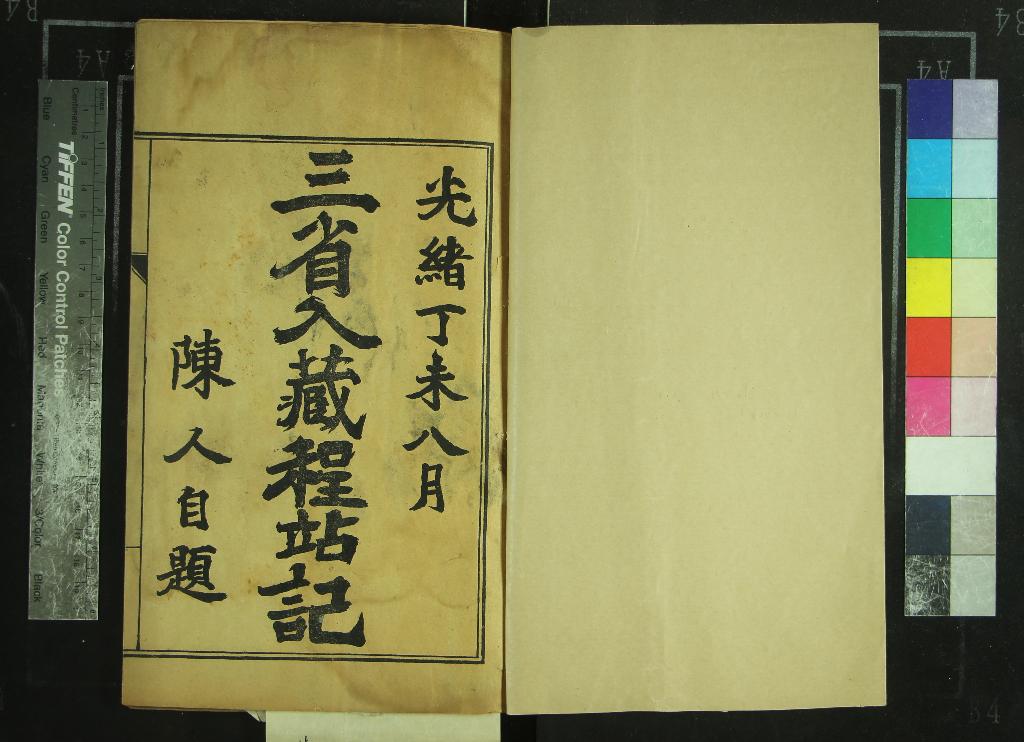 光緒丁未八月
三省入藏程站記
陳人自題
TIFFEN Color Control Patches
Blue
Cyan
Green
Yellow
Red
Magenta
White
3/Color
Black
Centimetres
Inches
A4
A4
B4
B4
B4